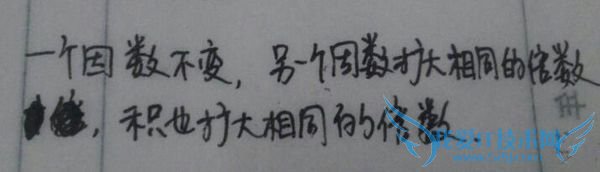 一个因数不变，另一个因数扩大相同的倍数
，积也扩大相同的倍数。